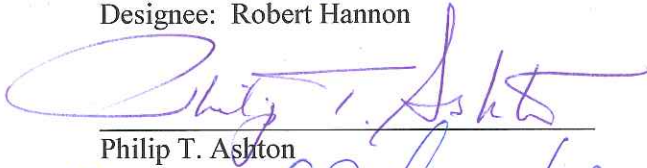 Designee: Robert Hannon
Philip T. Ashton
Philip T. Ashton